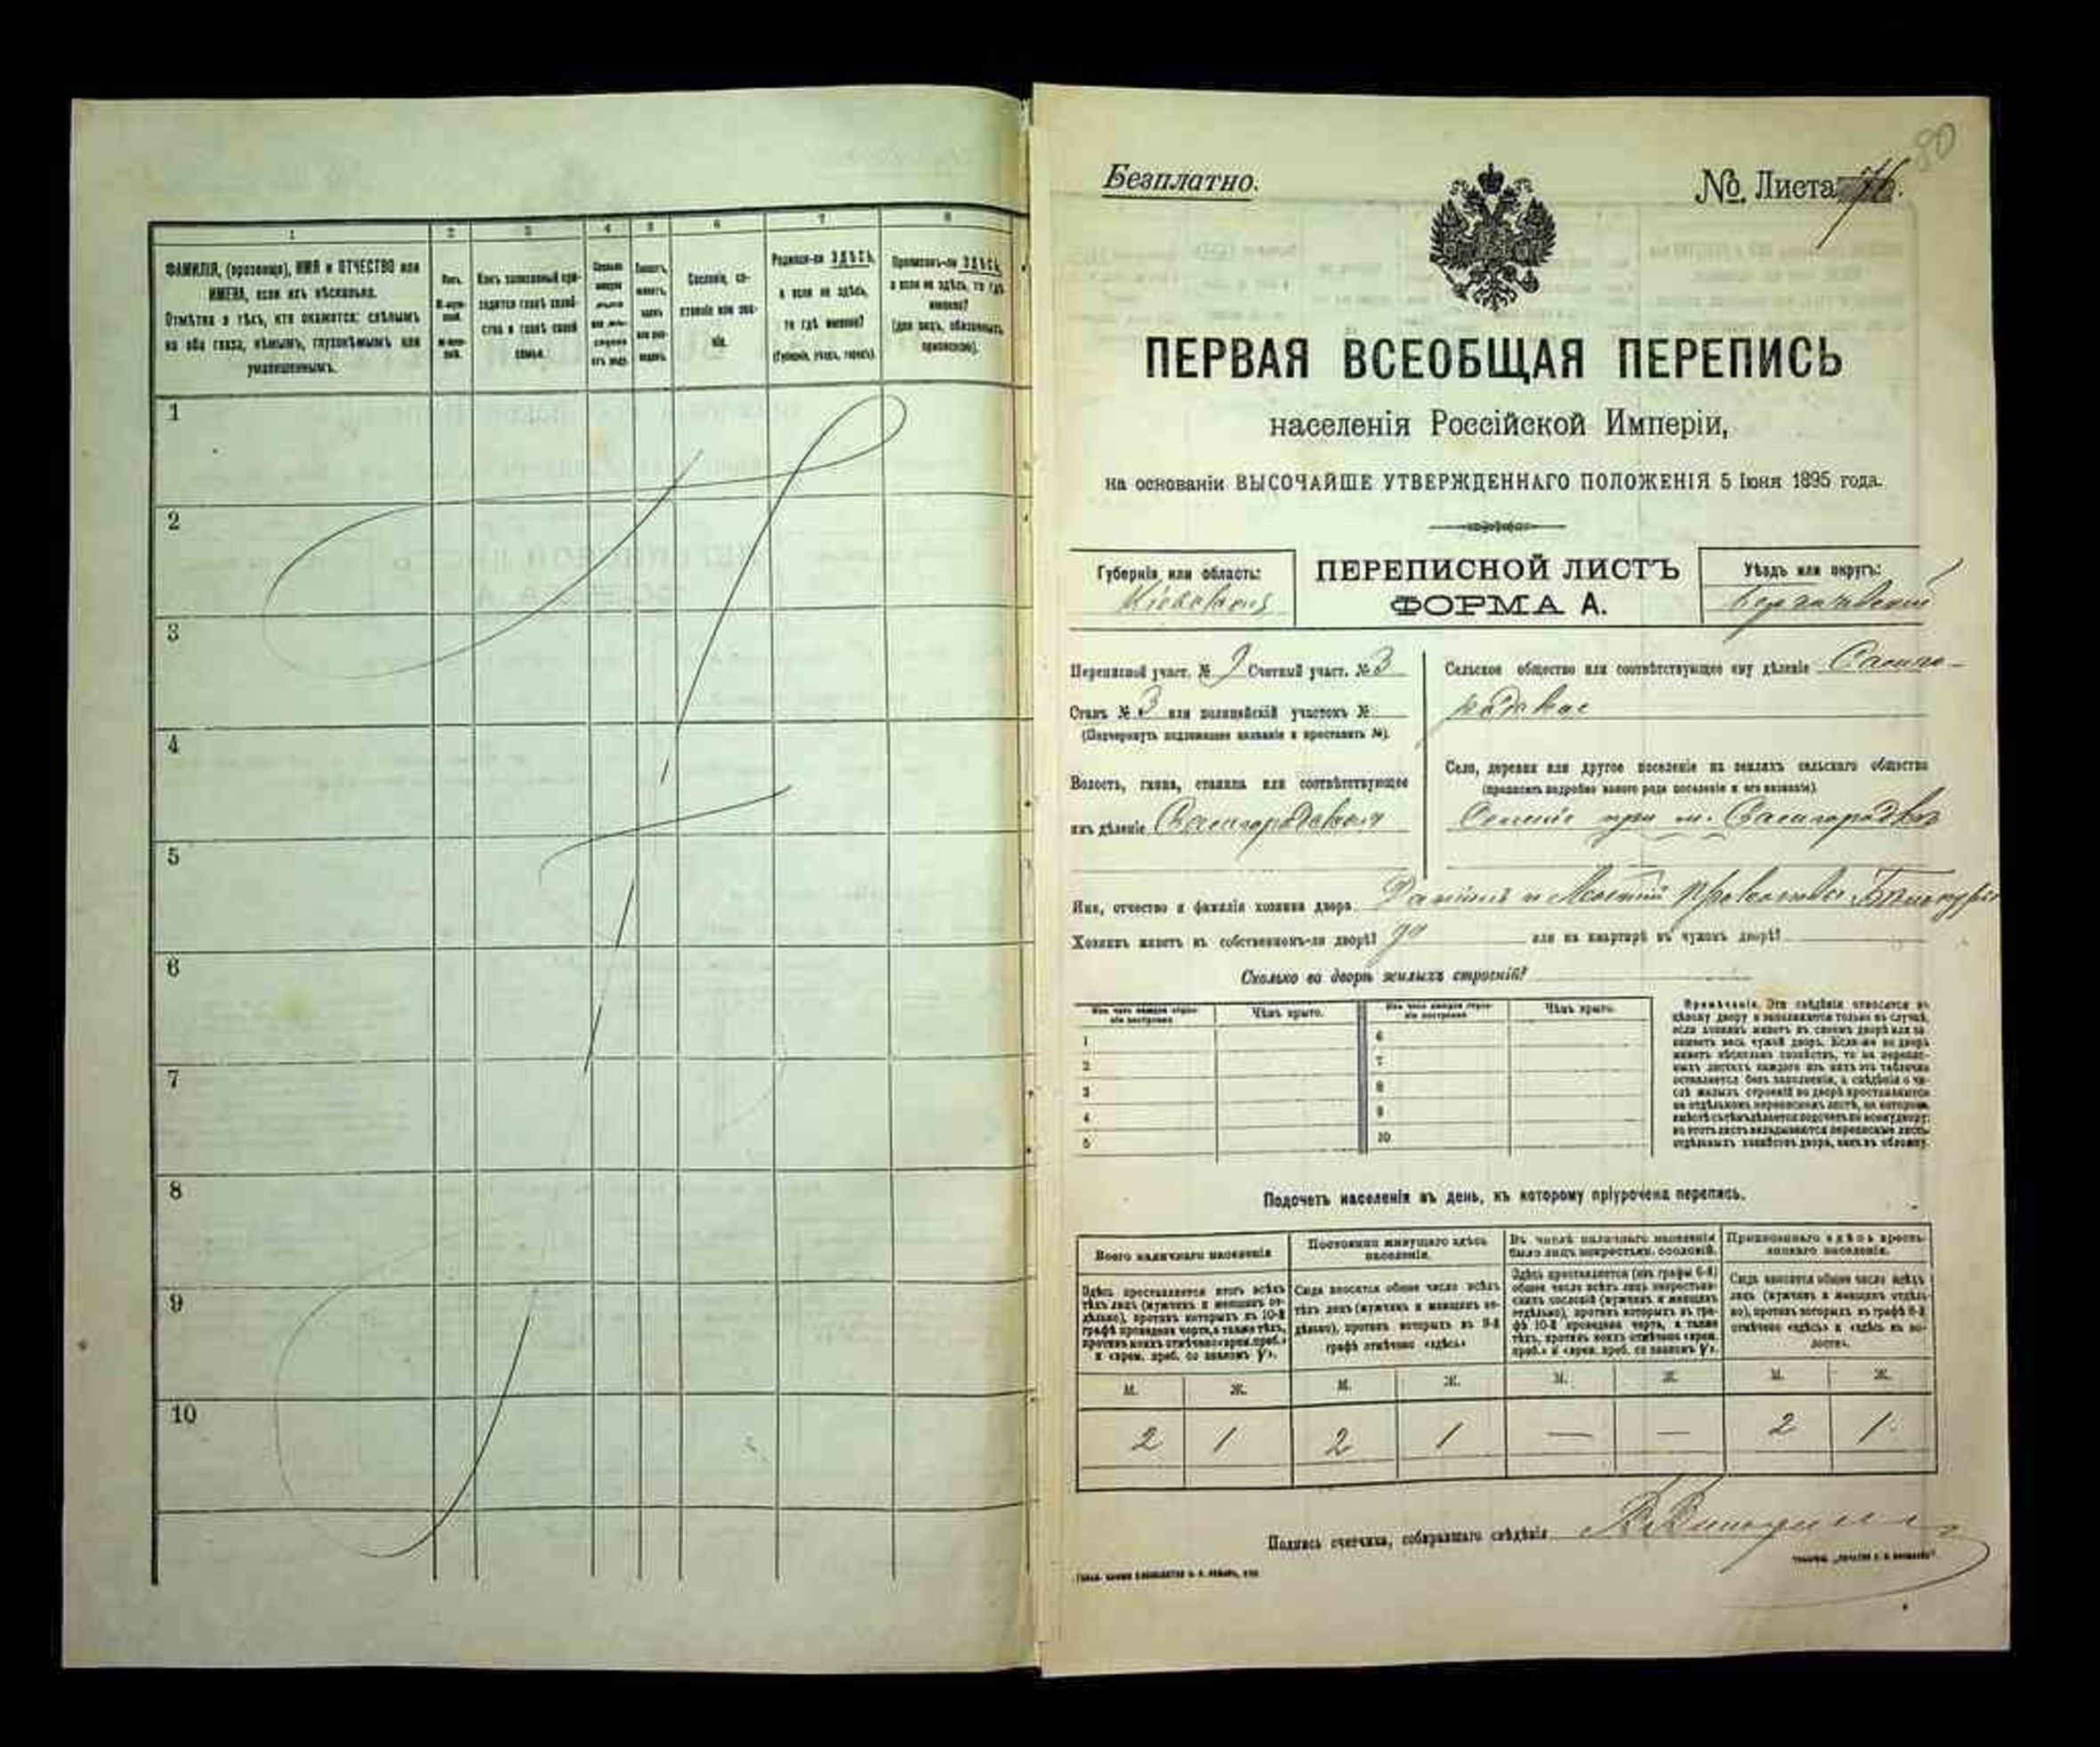 1
2
3
4
5
6
7
8
ФАМИЛІЯ, (прозвище), ИМЯ и ОТЧЕСТВО или
ИМЕНА, если ихъ нѣсколько.
Отмѣтка о тѣхъ, кто окажется: слѣпымъ
на оба глаза, нѣмымъ, глухонѣмымъ или
умалишеннымъ.
Какъ записанный при-
ходится главѣ хозяй-
ства и главѣ своей
семьи.
Сословіе, со-
стояніе или зва-
ніе.
Родился-ли ЗДѢСЬ,
а если не здѣсь,
то гдѣ именно?
(Губернія, уѣздъ, городъ).
Приписанъ-ли ЗДѢСЬ,
а если не здѣсь, то гдѣ
именно?
(для лицъ, обязанныхъ
припискою).
1
2
3
4
5
6
7
8
9
10
80
Безплатно.
№. Листа
ПЕРВАЯ ВСЕОБЩАЯ ПЕРЕПИСЬ
населенія Россійской Имперіи,
на основаніи ВЫСОЧАЙШЕ УТВЕРЖДЕННАГО ПОЛОЖЕНІЯ 5 Іюня 1895 года.
Губернія или область:
Кіевская
ПЕРЕПИСНОЙ ЛИСТЪ
ФОРМА А.
Уѣздъ или округъ:
Бердичевскій
Переписной участ. № 9 Счетный участ. № 3
Станъ № 3 или полицейскій участокъ №
(Подчеркнуть подлежащее названіе и проставить №).
Волость, гмина, станица или соотвѣтствующее
имъ дѣленіе
Сельское общество или соотвѣтствующее ему дѣленіе
Село, деревня или другое поселеніе на земляхъ сельскаго общества
(прописать подробно какого рода поселеніе и его названіе)
при м.
Имя, отчество и фамилія хозяина двора
Хозяинъ живетъ въ собственномъ-ли дворѣ? да или на квартирѣ въ чужомъ дворѣ?
Сколько во дворѣ жилыхъ строеній?
Изъ чего каждое строе-
ніе построено
Чѣмъ крыто.
Изъ чего каждое строе-
ніе построено
Чѣмъ крыто.
1
2
3
4
5
6
7
8
9
10
Примѣчаніе. Эти свѣдѣнія относятся къ
цѣлому двору и заполняются только въ случаѣ,
если хозяинъ живетъ въ своемъ дворѣ или за-
нимаетъ весь чужой дворъ. Если-же во дворѣ
живетъ нѣсколько хозяйствъ, то на перепис-
ныхъ листахъ каждаго изъ нихъ эта табличка
оставляется безъ заполненія, а свѣдѣнія о чи-
слѣ жилыхъ строеній во дворѣ проставляются
на отдѣльномъ переписномъ листѣ, на которомъ
вмѣстѣ съ тѣмъ дѣлается подсчетъ по всему двору;
въ этотъ листъ вкладываются переписные листы
отдѣльныхъ хозяйствъ двора, какъ въ обложку.
Подсчетъ населенія въ день, къ которому пріурочена перепись.
Всего наличнаго населенія
Постоянно живущаго здѣсь
населенія.
Въ числѣ наличнаго населенія
было лицъ некрестьян. сословій.
Приписаннаго здѣсь кресть-
янскаго населенія.
Здѣсь проставляется итогъ всѣхъ
тѣхъ лицъ (мужчинъ и женщинъ от-
дѣльно), противъ которыхъ въ 10-й
графѣ проведена черта, а также тѣхъ,
противъ коихъ отмѣчено «врем. преб.»
и «врем. преб. со знакомъ V».
Сюда вносится общее число всѣхъ
тѣхъ лицъ (мужчинъ и женщинъ от-
дѣльно), противъ которыхъ въ 9-й
графѣ отмѣчено «здѣсь»
Здѣсь проставляется (изъ графы 6-й)
общее число всѣхъ лицъ некрестьян-
скихъ сословій (мужчинъ и женщинъ
отдѣльно), противъ которыхъ въ гра-
фѣ 10-й проведена черта, а также
тѣхъ, противъ коихъ отмѣчено «врем.
преб.» и «врем. преб. со знакомъ V».
Сюда вносится общее число всѣхъ
лицъ (мужчинъ и женщинъ отдѣль-
но), противъ которыхъ въ графѣ 8-й
отмѣчено «здѣсь» и «здѣсь въ во-
лости».
М. Ж. М. Ж. М. Ж. М. Ж.
2 1 2 1 — — 2 1
Подпись счетчика, собиравшаго свѣдѣнія